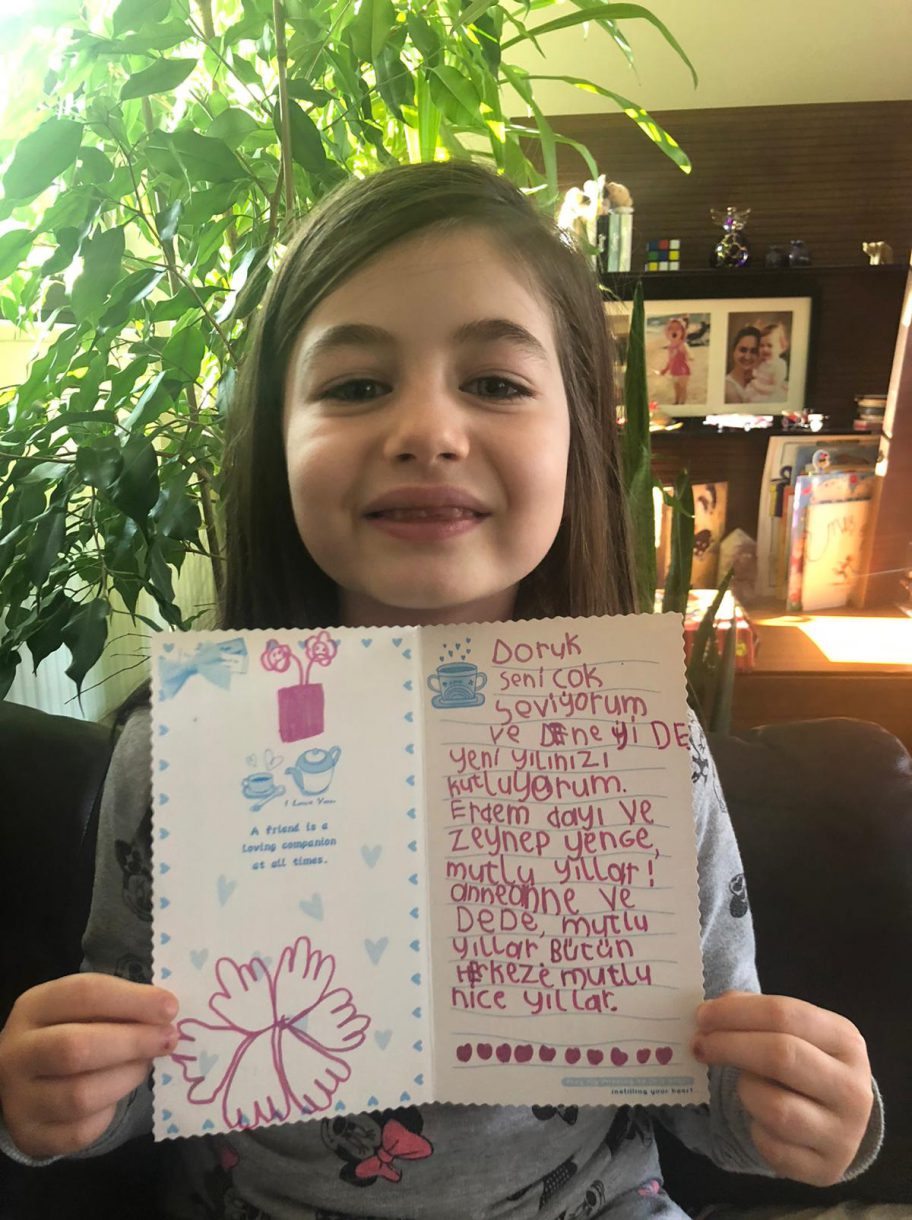 I Love You
A friend is a
loving companion
at all times.
Doruk
seni cok
seviyorum
ve Defneyi DE
yeni yılınızı
kutluyorum.
Erdem dayı ve
zeynep yenge,
mutlu yıllar!
anneanne ve
DEDE, mutlu
yıllar Bütün
Herkeze mutlu
nice yıllar.
instilling your heart